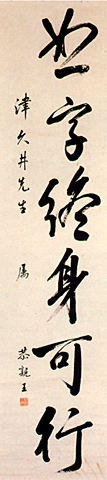 恕字終身可行
津久井先生 屬 恭親王